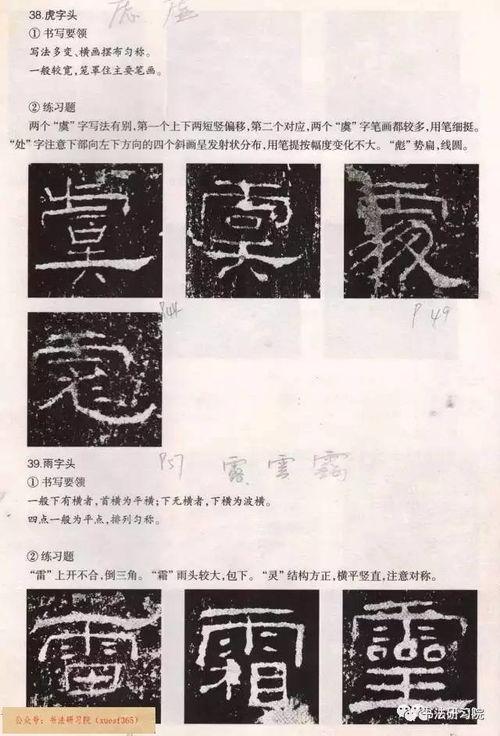 38.虎字头
① 书写要领
写法多变、横画摆布匀称。
一般较宽,笼罩住主要笔画。
② 练习题
两个“虞”字写法有别,第一个上下两短竖偏移,第二个对应,两个“虞”字笔画都较多,用笔细挺。
“处”字注意下部向左下方向的四个斜画呈发射状分布,用笔提按幅度变化不大。“彪”势扁,线圆。
虞 虞 處
P44 P49
39.雨字头 P57 露 雲 霭
① 书写要领
一般下有横者,首横为平横;下无横者,下横为波横。
四点一般为平点,排列匀称。
② 练习题
“雷”上开不合,倒三角。“霜”雨头较大,包下。“灵”结构方正,横平竖直,注意对称。
雷 霜 靈
公众号:书法研习院(xuesf365)
书法研习院